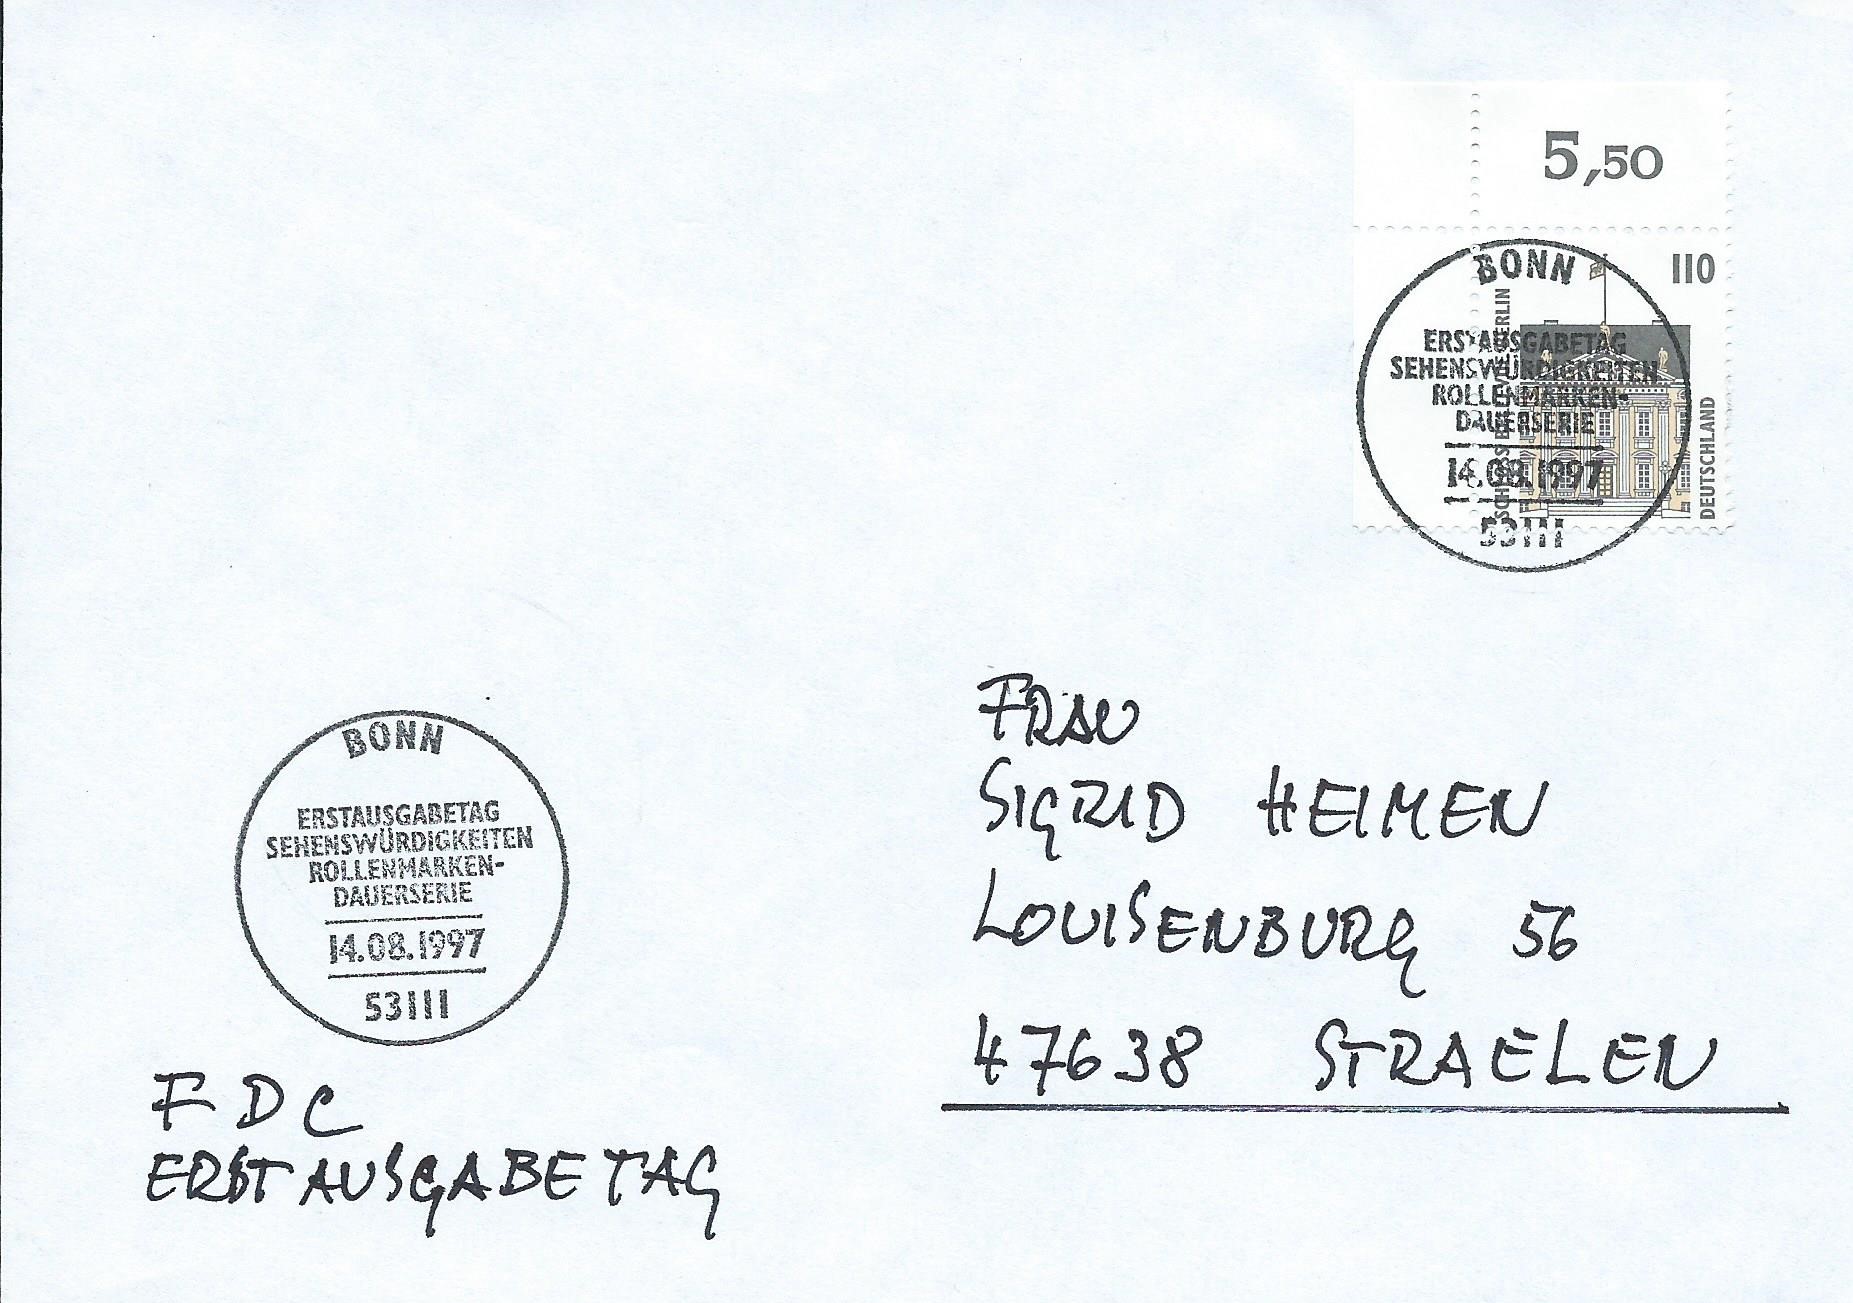 5,50
110
SCHLOSS BELLEVUE BERLIN
DEUTSCHLAND
BONN
ERSTAUSGABETAG
SEHENSWÜRDIGKEITEN
ROLLENMARKEN-
DAUERSERIE
14.08.1997
53111
FRAU
SIGRID HEIMEN
LOUISENBURG 56
47638 STRAELEN
BONN
ERSTAUSGABETAG
SEHENSWÜRDIGKEITEN
ROLLENMARKEN-
DAUERSERIE
14.08.1997
53111
FDC
ERSTAUSGABETAG